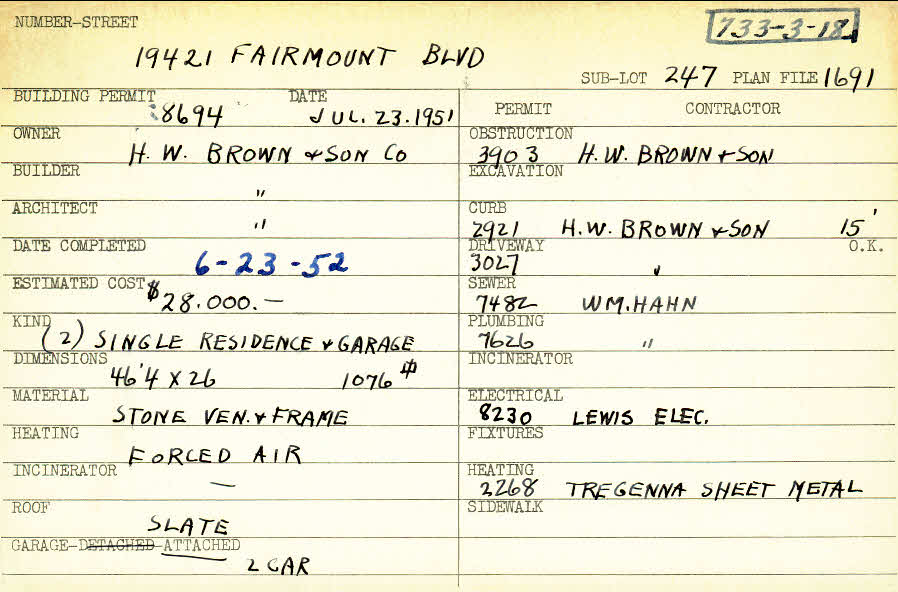 NUMBER-STREET
733-3-18
19421 FAIRMOUNT BLVD
SUB-LOT 247 PLAN FILE 1691
BUILDING PERMIT DATE
8694 JUL. 23. 1951
PERMIT CONTRACTOR
OWNER
H. W. BROWN & SON CO
OBSTRUCTION
3903 H. W. BROWN & SON
BUILDER
"
EXCAVATION
ARCHITECT
"
CURB
2921 H. W. BROWN & SON 15'
DATE COMPLETED
6-23-52
DRIVEWAY O.K.
3027 "
ESTIMATED COST
$28.000.—
SEWER
7482 WM. HAHN
KIND
(2) SINGLE RESIDENCE & GARAGE
PLUMBING
7626 "
DIMENSIONS
46'4 X 26 1076 #
INCINERATOR
MATERIAL
STONE VEN. & FRAME
ELECTRICAL
8230 LEWIS ELEC.
HEATING
FORCED AIR
FIXTURES
INCINERATOR
—
HEATING
2268 TREGENNA SHEET METAL
ROOF
SLATE
SIDEWALK
GARAGE-DETACHED-ATTACHED
2 CAR